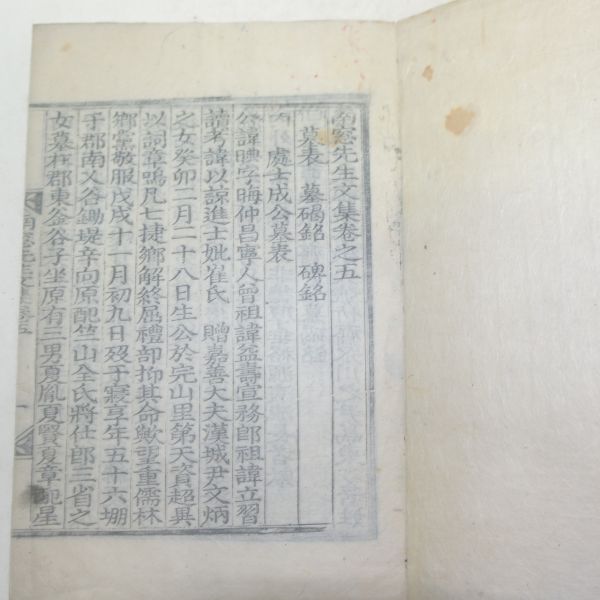 南窓先生文集卷之五
墓表 墓碣銘 碑銘
處士成公墓表
公諱晪字晦仲昌寧人曾祖諱益壽宣務郎祖諱立習
讀考諱以諒進士妣崔氏 贈嘉善大夫漢城尹文炳
之女癸卯二月二十八日生公於完山里第天資超異
以詞章鳴凡七捷鄉解終屈禮部抑其命歟望重儒林
鄉黨敬服戊戌十一月初九日歿于寢享年五十六堋
于郡南乂谷鋤堤辛向原配竺山全氏將仕郎三省之
女墓在郡東釜谷子坐原有三男夏胤夏賢夏章